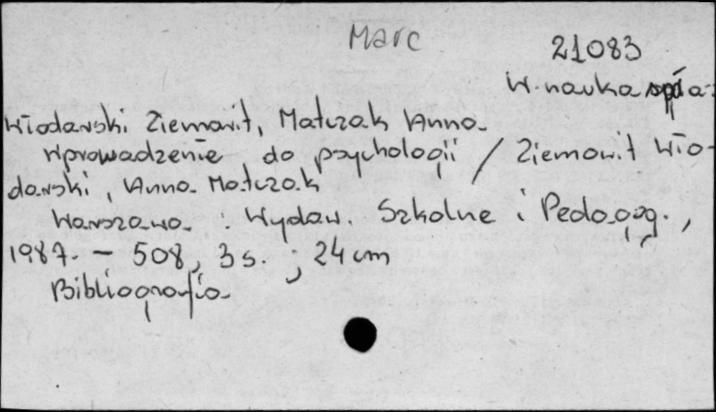 Marc
21083
W. nauka
Włodarski Ziemowit, Matczak Anna.
Wprowadzenie do psychologii / Ziemowit Wło-
darski, Anna Matczak
Warszawa : Wydaw. Szkolne i Pedagog.,
1987. - 508, 3 s. ; 24 cm
Bibliografia